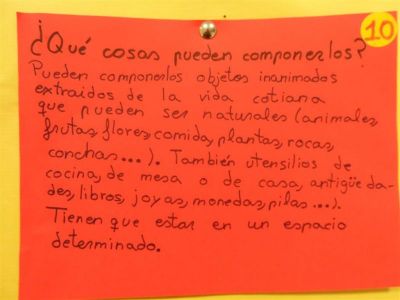 10
¿Qué cosas pueden componerlos?
Pueden componerlos objetos inanimados
extraídos de la vida cotiana
que pueden ser naturales (animales,
frutas, flores, comida, plantas, rocas,
conchas...). También utensilios de
cocina, de mesa o de casa, antigüeda-
des, libros, joyas, monedas, pilas...).
Tienen que estar en un espacio
determinado.